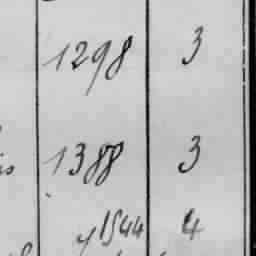 1298 3
1388 3
1544 4